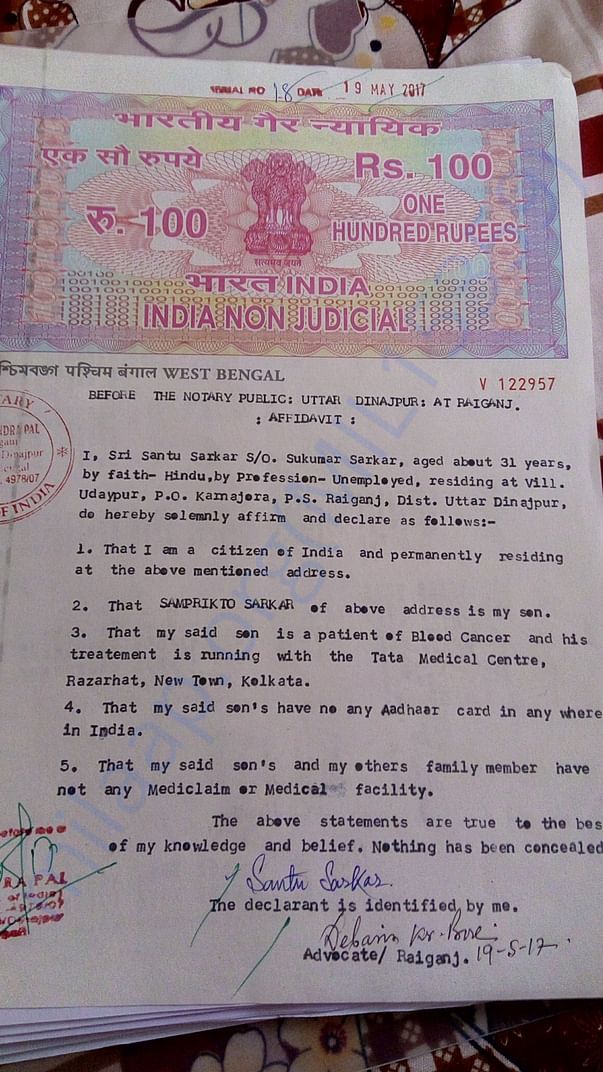 SERIAL NO 18 DATE 19 MAY 2017
भारतीय गैर न्यायिक
एक सौ रुपये Rs. 100
रु. 100 ONE
HUNDRED RUPEES
सत्यमेव जयते
भारत INDIA
INDIA NON JUDICIAL
পশ্চিমবঙ্গ पश्चिम बंगाल WEST BENGAL
V 122957
BEFORE THE NOTARY PUBLIC: UTTAR DINAJPUR: AT RAIGANJ.
: AFFIDAVIT :
I, Sri Santu Sarkar S/O. Sukumar Sarkar, aged about 31 years,
by faith- Hindu,by Profession- Unemployed, residing at Vill.
Udaypur, P.O. Kamajora, P.S. Raiganj, Dist. Uttar Dinajpur,
do hereby solemnly affirm and declare as follows:-
1. That I am a citizen of India and permanently residing
at the above mentioned address.
2. That SAMPRIKTO SARKAR of above address is my son.
3. That my said son is a patient of Blood Cancer and his
treatement is running with the Tata Medical Centre,
Razarhat, New Town, Kolkata.
4. That my said son's have no any Aadhaar card in any where
in India.
5. That my said son's and my others family member have
not any Mediclaim or Medical facility.
The above statements are true to the bes
of my knowledge and belief. Nothing has been concealed
Santu Sarkar.
The declarant is identified by me.
Advocate/ Raiganj. 19-5-17.
ARY
NDRA PAL
Dinajpur
4978/07
OF INDIA
RA PAL